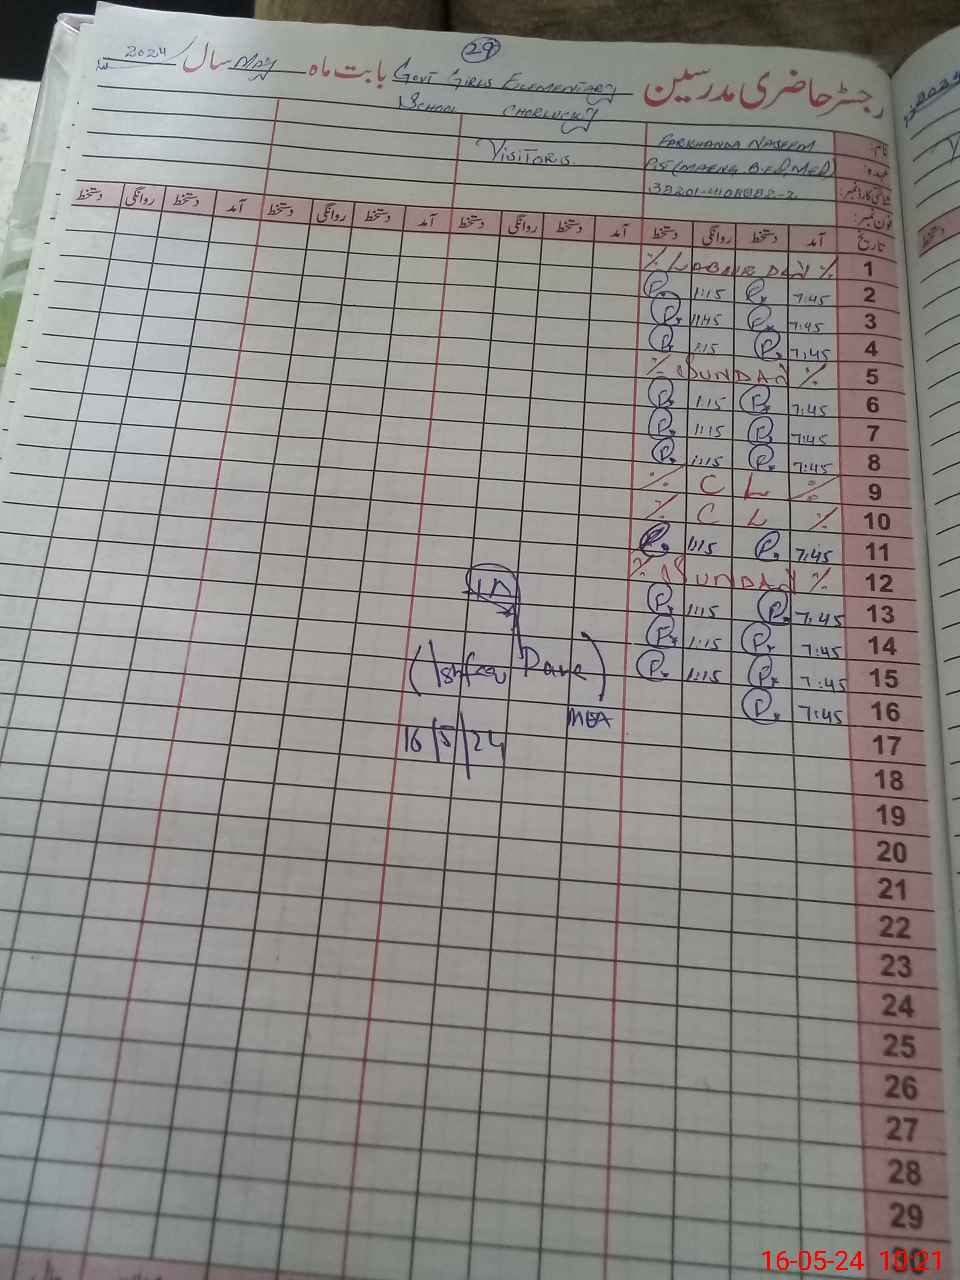 29
رجسٹر حاضری مدرسین Govt Girls Elementary بابت ماہ May سال 2024
School
Visitors
نام: Farkhanda Naseem
عہدہ: PST (M.A Eng, B.Ed, M.Ed)
شناختی کارڈ نمبر:
فون نمبر:
تاریخ آمد دستخط روانگی دستخط آمد دستخط روانگی دستخط آمد دستخط روانگی دستخط آمد دستخط روانگی دستخط
1 ٪ Labour Day ٪
2 7:45 P. 1:15 P.
3 7:45 P. 11:45 P.
4 7:45 P. 1:15 P.
5 ٪ SUNDAY ٪
6 7:45 P. 1:15 P.
7 7:45 P. 1:15 P.
8 7:45 P. 1:15 P.
9 ٪ C L ٪
10 ٪ C L ٪
11 7:45 P. 1:15 P.
12 ٪ SUNDAY ٪
13 7:45 P. 1:15 P.
14 7:45 P. 1:15 P.
15 7:45 P. 1:15 P.
16 7:45 P.
(Ishfaq
MEA
16/5/24
17
18
19
20
21
22
23
24
25
26
27
28
29
30
16-05-24 10:21